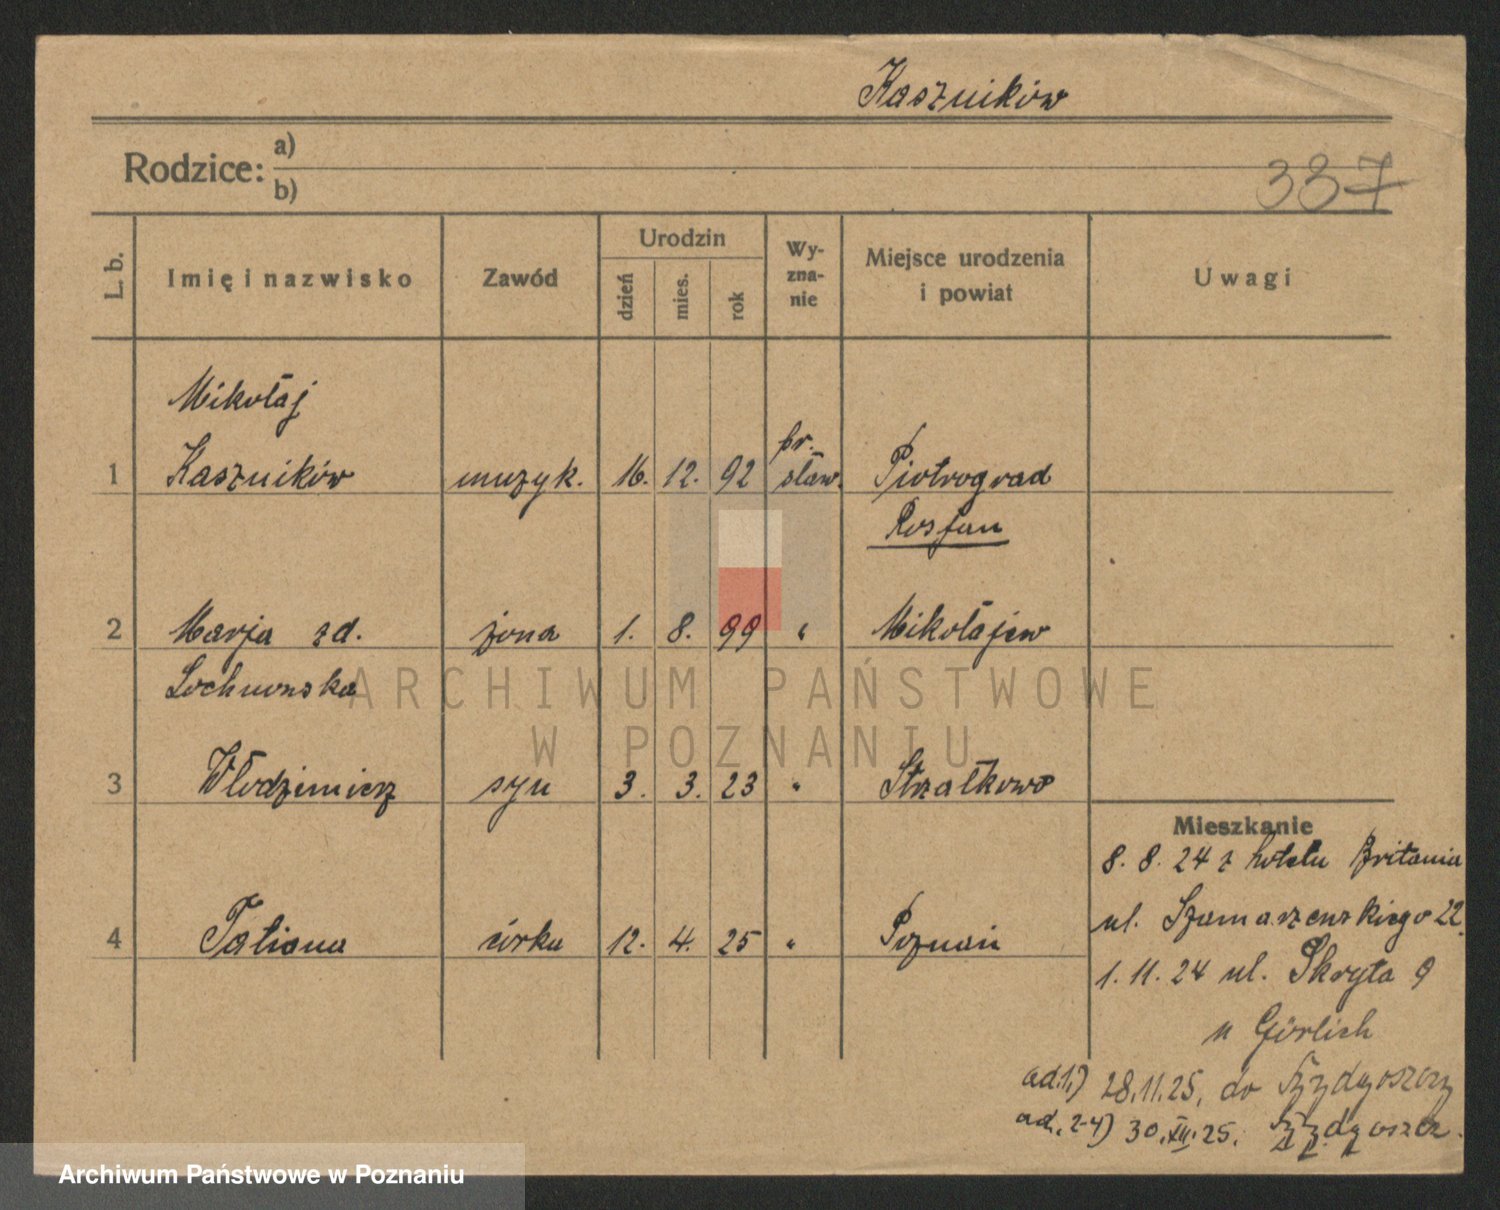 Kaszników
Rodzice: a)
b)
337
L. b.
Imię i nazwisko
Zawód
Urodzin
dzień
mies.
rok
Wy-
zna-
nie
Miejsce urodzenia
i powiat
Uwagi
Mikołaj
1 Kaszników muzyk. 16. 12. 92 pr. sław. Piotrograd
2 Marja zd. żona 1. 8. 99 " Mikołajew
3 Włodzimierz syn 3. 3. 23 " Strzałkowo
Mieszkanie
8. 8. 24 z hotelu Britania
ul. Szamarzewskiego 22.
4 Tatiana córka 12. 4. 25 " Poznań
1. 11. 24 ul. Skryta 9
u Görlich
ad.1.) 28.11.25, do Bydgoszczy
ad. 2-4) 30.XII.25. Bydgoszcz.
ARCHIWUM PAŃSTWOWE
W POZNANIU
Archiwum Państwowe w Poznaniu